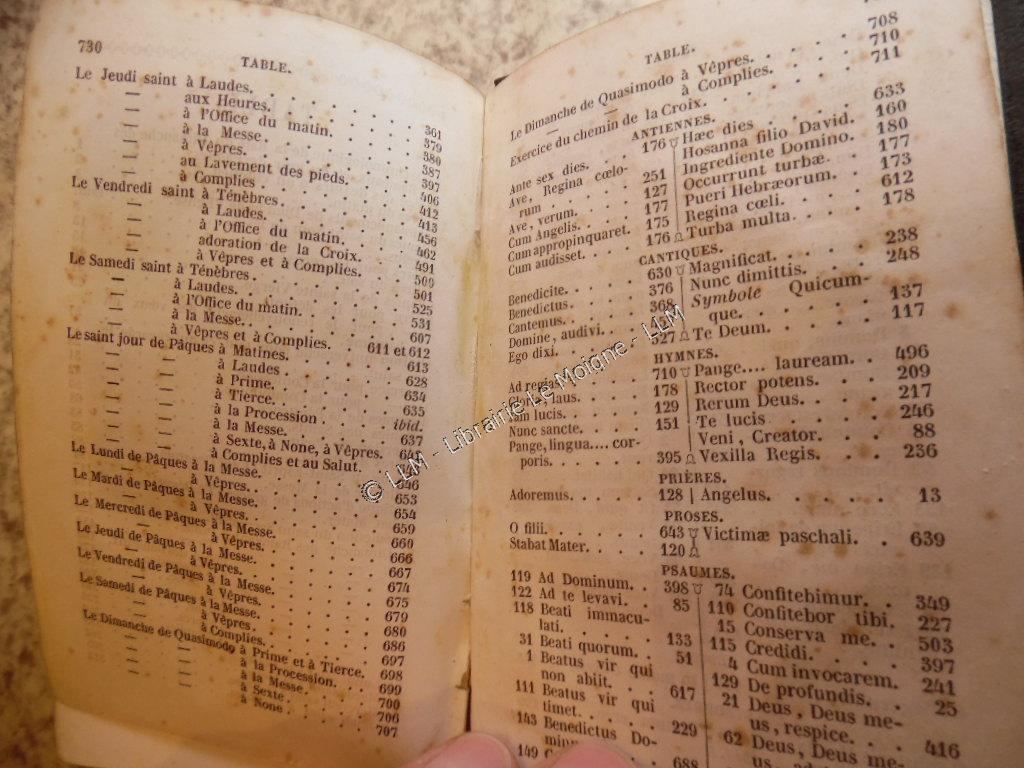 730
TABLE.
Le Jeudi saint à Laudes.
— aux Heures. 361
— à l'Office du matin. 379
— à la Messe. 380
— à Vêpres. 387
— au Lavement des pieds. 397
— à Complies. 406
Le Vendredi saint à Ténèbres. 412
— à Laudes. 413
— à l'Office du matin. 456
— adoration de la Croix. 462
— à Vêpres et à Complies. 491
Le Samedi saint à Ténèbres. 500
— à Laudes. 501
— à l'Office du matin. 525
— à la Messe. 531
— à Vêpres et à Complies. 607
Le saint jour de Pâques à Matines. 611 et 612
— — à Laudes 613
— — à Prime. 628
— — à Tierce. 634
— — à la Procession 635
— — à la Messe. ibid.
— — à Sexte, à None, à Vêpres. 637
— — à Complies et au Salut.
Le Lundi de Pâques à la Messe. 646
— à Vêpres. 653
Le Mardi de Pâques à la Messe. 654
— à Vêpres. 659
Le Mercredi de Pâques à la Messe. 660
— à Vêpres. 666
Le Jeudi de Pâques à la Messe. 667
— à Vêpres. 674
Le Vendredi de Pâques à la Messe. 675
— à Vêpres. 679
Le Samedi de Pâques à la Messe. 680
— à Complies. 686
Le Dimanche de Quasimodo à Prime et à Tierce. 697
— — à la Procession. 698
— — à la Messe. 699
— — à Sexte. 700
— — à None. 706
707
TABLE.
Le Dimanche de Quasimodo à Vêpres. 708
— — à Complies. 710
Exercice du chemin de la Croix. 711
ANTIENNES.
Ante sex dies. 176
Ave, Regina cœlo-
rum 251
Ave, verum. 127
Cum Angelis. 177
Cum appropinquaret. 175
Cum audisset. 176
Hæc dies 633
Hosanna filio David. 160
Ingrediente Domino. 180
Occurrunt turbæ. 177
Pueri Hebræorum. 173
Regina cœli. 612
Turba multa. 178
CANTIQUES.
Benedicite. 630
Benedictus. 376
Cantemus. 368
Domine, audivi.
Ego dixi. 527
Magnificat. 238
Nunc dimittis. 248
Symbole Quicum-
que. 137
Te Deum. 117
HYMNES.
Ad regias. 710
Gloria, laus. 178
Jam lucis. 129
Nunc sancte. 151
Pange, lingua.... cor-
poris. 395
Pange.... lauream. 496
Rector potens. 209
Rerum Deus. 217
Te lucis 246
Veni, Creator. 88
Vexilla Regis. 236
PRIÈRES.
Adoremus. 128
Angelus. 13
PROSES.
O filii. 643
Stabat Mater. 120
Victimæ paschali. 639
PSAUMES.
119 Ad Dominum. 398
122 Ad te levavi. 85
118 Beati immacu-
lati. 133
31 Beati quorum. 51
1 Beatus vir qui
non abiit. 617
111 Beatus vir qui
timet. 229
143 Benedictus Do-
149 688
74 Confitebimur. 349
110 Confitebor tibi. 227
15 Conserva me. 503
115 Credidi. 397
4 Cum invocarem. 241
129 De profundis. 25
21 Deus, Deus me-
us, respice. 416
62 Deus, Deus me-
© LLM - Librairie Le Moigne - LLM